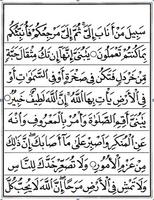 سَبِيلَ مَنْ أَنَابَ إِلَيَّ ثُمَّ إِلَيَّ مَرْجِعُكُمْ فَأُنَبِّئُكُم
بِمَا كُنتُمْ تَعْمَلُونَ يَٰبُنَيَّ إِنَّهَا إِن تَكُ مِثْقَالَ حَبَّةٍ
مِّنْ خَرْدَلٍ فَتَكُن فِي صَخْرَةٍ أَوْ فِي السَّمَٰوَٰتِ أَوْ
فِي الْأَرْضِ يَأْتِ بِهَا اللَّهُ إِنَّ اللَّهَ لَطِيفٌ خَبِيرٌ
يَٰبُنَيَّ أَقِمِ الصَّلَوٰةَ وَأْمُرْ بِالْمَعْرُوفِ وَانْهَ
عَنِ الْمُنكَرِ وَاصْبِرْ عَلَىٰ مَا أَصَابَكَ إِنَّ ذَٰلِكَ
مِنْ عَزْمِ الْأُمُورِ وَلَا تُصَعِّرْ خَدَّكَ لِلنَّاسِ
وَلَا تَمْشِ فِي الْأَرْضِ مَرَحًا إِنَّ اللَّهَ لَا يُحِبُّ كُلَّ